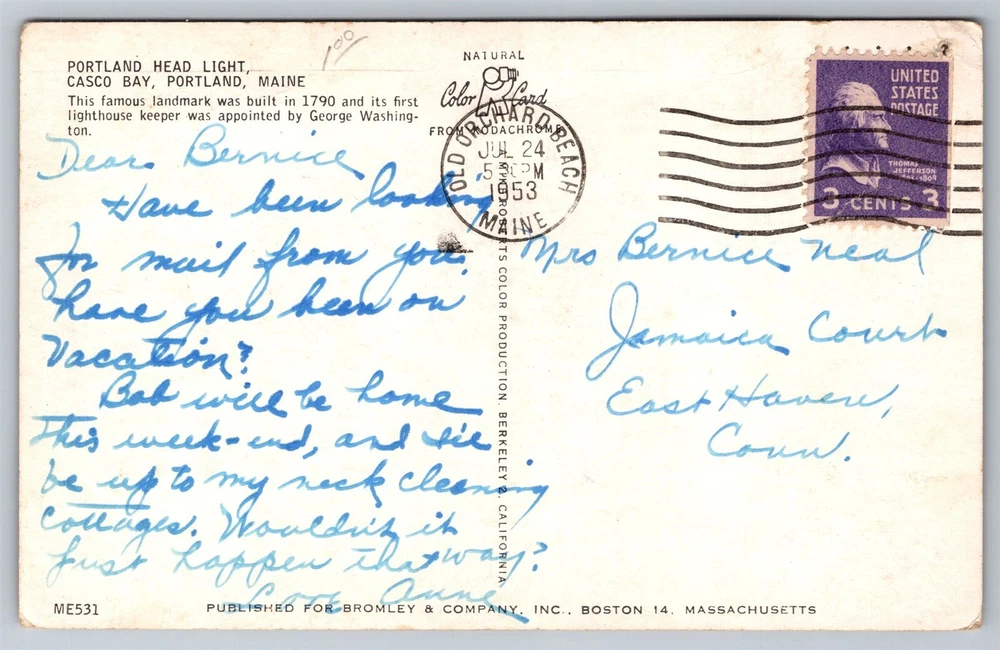 1⁰⁰
PORTLAND HEAD LIGHT,
CASCO BAY, PORTLAND, MAINE
This famous landmark was built in 1790 and its first
lighthouse keeper was appointed by George Washing-
ton.
NATURAL
Color Card
FROM KODACHROME
Dear Bernice
Have been looking
for mail from you,
have you been on
Vacation?
Bob will be home
This week-end, and I'll
be up to my neck cleaning
cottages. Wouldn't it
just happen that way?
Love Anne
OLD ORCHARD BEACH
JUL 24
5 PM
1953
MAINE
UNITED
STATES
POSTAGE
THOMAS
JEFFERSON
3 CENTS 3
Mrs Bernice Neal
Jamaica Court
East Haven,
Conn.
ROBERTS COLOR PRODUCTION, BERKELEY 2, CALIFORNIA
ME531
PUBLISHED FOR BROMLEY & COMPANY, INC., BOSTON 14, MASSACHUSETTS